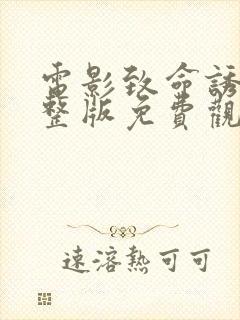 電影致命誘
整版免費觀
速溶熱可可